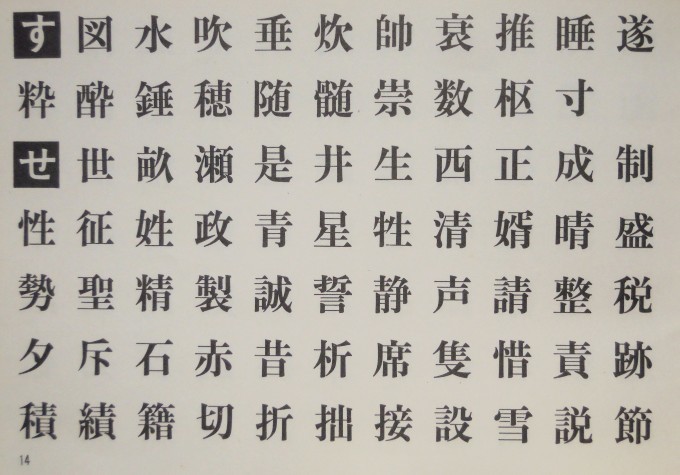 す 図 水 吹 垂 炊 帥 衰 推 睡 遂
粋 酔 錘 穂 随 髄 崇 数 枢 寸
せ 世 畝 瀬 是 井 生 西 正 成 制
性 征 姓 政 青 星 牲 清 婿 晴 盛
勢 聖 精 製 誠 誓 静 声 請 整 税
夕 斥 石 赤 昔 析 席 隻 惜 責 跡
積 績 籍 切 折 拙 接 設 雪 説 節
14